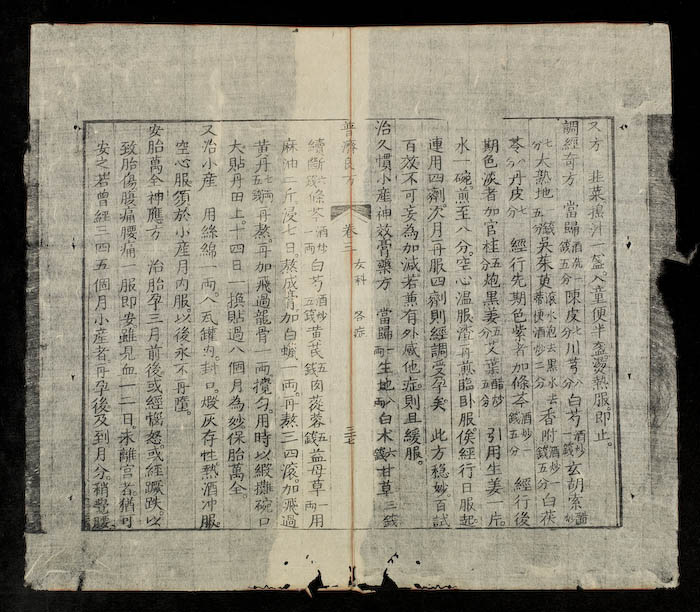 又方 韭菜搗汁一盞入童便半盞盪熱服即止。
調經奇方 當歸酒洗一錢五分陳皮七分川芎八分白芍酒炒一錢玄胡索醋炒
七分大熟地五分錢吳茱萸滾水泡去黑水去蒂便酒炒二分香附酒炒一錢五分白茯
苓八分丹皮七分 經行先期色紫者加條芩酒炒一錢五分 經行後
期色淡者加官桂五分炮黑姜五分艾葉醋炒五分 引用生姜一片。
水一碗。煎至八分。空心溫服渣再煎臨卧服俟經行日服起。
連用四劑次月再服四劑則經調受孕矣 此方穩妙。百試
百效不可妄為加減若兼有外感他症。則且緩服。
治久慣小產神效膏藥方 當歸一兩生地八兩白木六錢甘草三錢
普濟良方 卷二 女科 各症
續斷六錢條芩酒炒一兩白芍酒炒五錢黃芪五錢肉蓯蓉五錢益母草一兩用
麻油二斤浸七日。熬成膏加白蠟一兩。再熬三四滾。加飛過
黃丹七兩五錢再熬。再加飛過龍骨一兩攪勻。用時以緞攤碗口
大貼丹田上。十四日一換貼過八個月為妙保胎萬全。
又治小產 用絲綿一兩入瓦罐內。封口。煅灰存性熱酒冲服。
空心服須於小產月內服以後永不再墮。
安胎萬全神應方 治胎孕三月前後或經惱怒。或經蹶跌。以
致胎傷腹痛腰痛一服即安雖見血一二日。未離宮者。猶可
安之若曾經三四五個月小產者。再孕後及到月分。稍覺腰